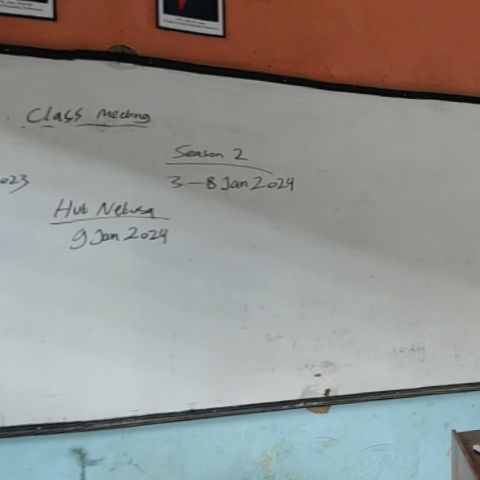 Class Meeting
Season 2
023
3 - 8 Jan 2024
Hut Netusa
9 Jan 2024